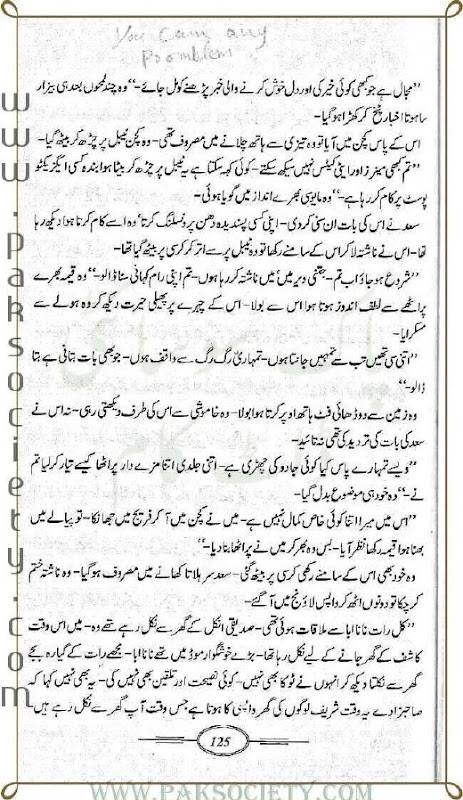 You Can any
Proomblem
”مجال ہے جو کبھی کوئی خیر کی اور دل خوش کرنے والی خبر پڑھنے کو مل جائے۔“ وہ چند لمحوں بعد ہی بیزار
سا ہوتا اخبار پٹخ کر کھڑا ہو گیا۔
اس کے پاس کچن میں آیا تو وہ تیزی سے ہاتھ چلانے میں مصروف تھی۔ وہ کچن ٹیبل پر چڑھ کر بیٹھ گیا۔
”تم کبھی مینرز اور ایٹی کیٹس نہیں سیکھ سکتے۔ کوئی کہہ سکتا ہے یہ ٹیبل پر چڑھ کر بیٹھا ہوا بندہ کسی ایگزیکٹو
پوسٹ پر کام کر رہا ہے۔“ وہ مایوسی بھرے انداز میں گویا ہوئی۔
سعد نے اس کی بات ان سنی کر دی۔ اپنی کسی پسندیدہ دھن پر وسلنگ کرتا‘ وہ اسے کام کرتا ہوا دیکھ رہا
تھا۔ اس نے ناشتہ لا کر اس کے سامنے رکھا تو وہ ٹیبل پر سے اتر کر کرسی پر بیٹھ گیا تھا۔
”شروع ہو جاؤ اب تم۔ جتنی دیر میں‘ میں ناشتہ کر رہا ہوں۔ تم اپنی رام کہانی سنا ڈالو۔“ وہ قیمہ بھرے
پراٹھے سے لطف اندوز ہوتا ہوا اس سے بولا۔ اس کے چہرے پر پھیلی حیرت دیکھ کر وہ ہولے سے
مسکرایا۔
”اتنی سی تھیں تب سے تمہیں جانتا ہوں۔ تمہاری رگ رگ سے واقف ہوں۔ جو بھی بات بتانی ہے بتا
ڈالو۔“
وہ زمین سے دو ڈھائی فٹ ہاتھ اوپر کرتا ہوا بولا۔ وہ خاموشی سے اس کی طرف دیکھتی رہی۔ نہ اس نے
سعد کی بات کی تردید کی تھی نہ تائید۔
”ویسے تمہارے پاس کیا کوئی جادو کی چھڑی ہے۔ اتنی جلدی اتنا مزے دار پراٹھا کیسے تیار کر لیا تم
نے۔“ وہ خود ہی موضوع بدل گیا۔
”اس میں میرا اتنا کوئی خاص کمال نہیں ہے۔ میں نے کچن میں آ کر فریج میں جھانکا۔ تو پیالے میں
بھنا ہوا قیمہ رکھا نظر آیا۔ بس وہ بھر کر میں نے پراٹھا بنا دیا۔“
وہ خود بھی اس کے سامنے رکھی کرسی پر بیٹھ گئی۔ سعد سر ہلاتا کھانے میں مصروف ہو گیا۔ وہ ناشتہ ختم
کر چکا تو دونوں اٹھ کر واپس لاؤنج میں آ گئے۔
”کل رات نانا ابا سے ملاقات ہوئی تھی۔ صدیقی انکل کے گھر سے نکل رہے تھے وہ۔ میں اس وقت
کاشف کے گھر جانے کے لیے نکل رہا تھا۔ بڑے خوشگوار موڈ میں تھے نانا ابا۔ مجھے رات کے گیارہ بجے
گھر سے نکلتا دیکھ کر انہوں نے ٹوکا بھی نہیں۔ کوئی نصیحت اور تلقین بھی نہیں کی۔ یہ بھی نہیں کہا کہ
صاحبزادے یہ وقت شریف لوگوں کی گھر واپسی کا ہوتا ہے جس وقت آپ گھر سے نکل رہے ہیں‘
125
www.paksociety.com
WWW.PAKSOCIETY.COM